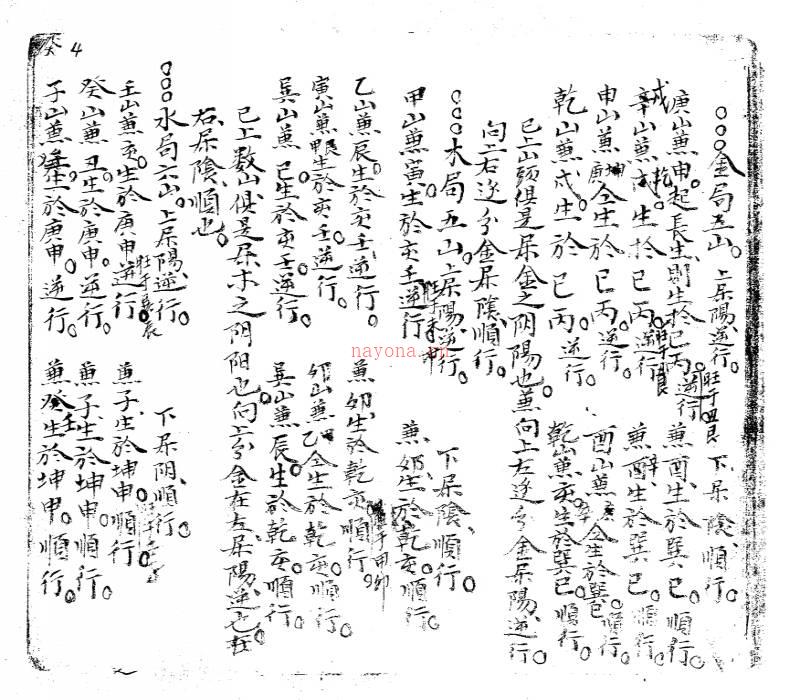 癸 4
○○○金局五山。上屬陽、逆行。旺于四艮 下屬陰、順行。
庚山兼申。起長生、則生於巳丙、逆行 兼酉。生於巽巳。順行。
辛山兼戌乾。生於巳丙。逆行 兼酉辛。生於巽巳。順行。
申山兼坤庚。仝生於巳丙。逆行。 酉山兼 仝生於巽巳。順行。
乾山兼戌。生於巳丙。逆行。 乾山兼亥。生於巽巳。順行。
巳上山頭俱是屬金之阴陽也。兼向上左邊分金屬陽、逆行。
向上右邊分金屬陰、順行。
○○○木局五山。上屬陽、逆行。 下屬陰、順行。
甲山兼寅。生於亥壬、逆行 兼卯。生於乾亥。順行。
乙山兼辰。生於亥壬、逆行。 兼卯。生於乾亥、順行。
寅山兼艮甲。生於亥壬。逆行。 卯山兼乙甲。仝生於乾亥。順行。
巽山兼巳。生於亥壬。逆行。 巽山兼辰。生於乾亥。順行。
巳上數山俱是屬木之阴阳也。向上分金在左、屬陽、逆也。在
右、屬陰、順也。
○○○水局六山。上屬陽、逆行。 下屬阴、順行。
壬山兼亥。生於庚申、逆行。 兼子。生於坤申。順行。
癸山兼丑。生於庚申。逆行。 兼子。生於坤申。順行。
子山兼 生於庚申。逆行。 兼癸壬。生於坤申。順行。
nayona.cn